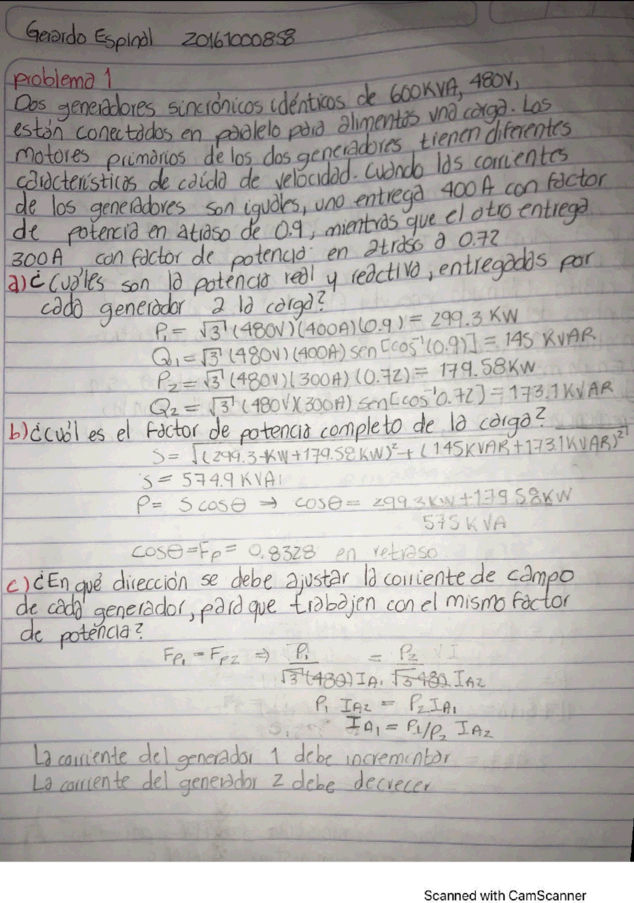 Gerardo Espinal 20161000858
problema 1
Dos generadores sincrónicos idénticos de 600KVA, 480V,
están conectados en paralelo para alimentos una carga. Los
motores primarios de los dos generadores tienen diferentes
características de caída de velocidad. Cuando las corrientes
de los generadores son iguales, uno entrega 400A con factor
de potencia en atraso de 0.9, mientras que el otro entrega
300A con factor de potencia en atraso a 0.72
a) ¿Cuáles son la potencia real y reactiva, entregadas por
cada generador a la carga?
P₁ = √3 (480V)(400A)(0.9) = 299.3 KW
Q₁ = √3 (480V)(400A) sen[cos⁻¹(0.9)] = 145 KVAR
P₂ = √3 (480V)(300A)(0.72) = 179.58KW
Q₂ = √3 (480V)(300A) sen[cos⁻¹0.72] = 173.1KVAR
b) ¿cuál es el factor de potencia completo de la carga?
S = √(299.3 KW + 179.58 KW)² + (145KVAR + 173.1KVAR)²
S = 574.9 KVA
P = S cosθ ⇒ cosθ = 299.3KW + 179.58KW
575 KVA
cosθ = Fp = 0.8328 en retraso
c) ¿En qué dirección se debe ajustar la corriente de campo
de cada generador, para que trabajen con el mismo factor
de potencia?
Fp₁ = Fp₂ ⇒ P₁ = P₂
√3 (480) IA₁ √3 480 IA₂
P₁ IA₂ = P₂ IA₁
IA₁ = P₁/P₂ IA₂
La corriente del generador 1 debe incrementar
La corriente del generador 2 debe decrecer
Scanned with CamScanner